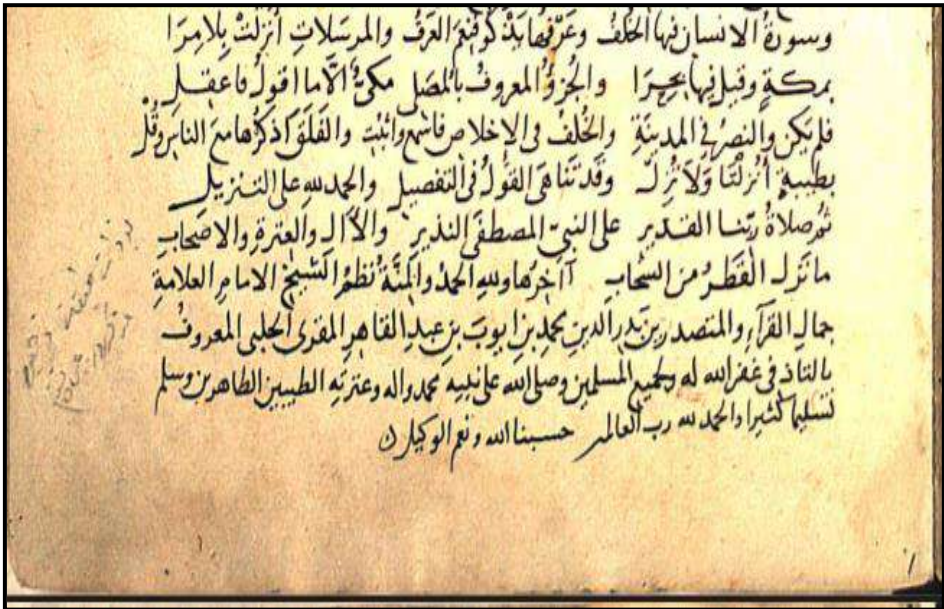 وسورةُ الانسان فيها الخُلفُ وعَرْفُها يَذْكو فنِعْمَ العَرفُ والمرسَلاتِ أُنزِلَتْ بِلا مِرَا
بمكةٍ وقيل فيها بحِرَا والجُزؤُ المعروفُ بالمُصَلِ مكيّ الّا ما اقولُ فاعقل
فلم يكن والنصرُ في المدينةِ والخُلفُ في الاخلاص فاسمع واثبت والفَلَق اذكرْها معَ الناسِ وقُلْ
بطيبةٍ أُنزلَتَا وَلَا تَزُلْ وقد تَنَاهى القولُ في التفصيلِ والحمد للهِ على التنزيل
ثم صلاةُ ربّنا القدير على النبيّ المصطفَى النذير والآلِ والعِترةِ والاصحابِ
ما نَزل القَطرُ من السَّحابِ آخرها ولله الحمدُ والمِنَّة نَظمُ الشيخ الامامِ العلامةِ
جمالِ القرآءِ والمتصدرين بدرِ الدين محمدِ بنِ ايوبَ بنِ عبدِ القاهرِ المقرى الحلبى المعروفُ
بالتاذفى غفر الله له ولجميع المسلمين وصلى الله على نبيه محمد واله وعترته الطيبين الطاهرين وسلم
تسليما كثيرا والحمد لله رب العالمين حسبنا الله ونعم الوكيل